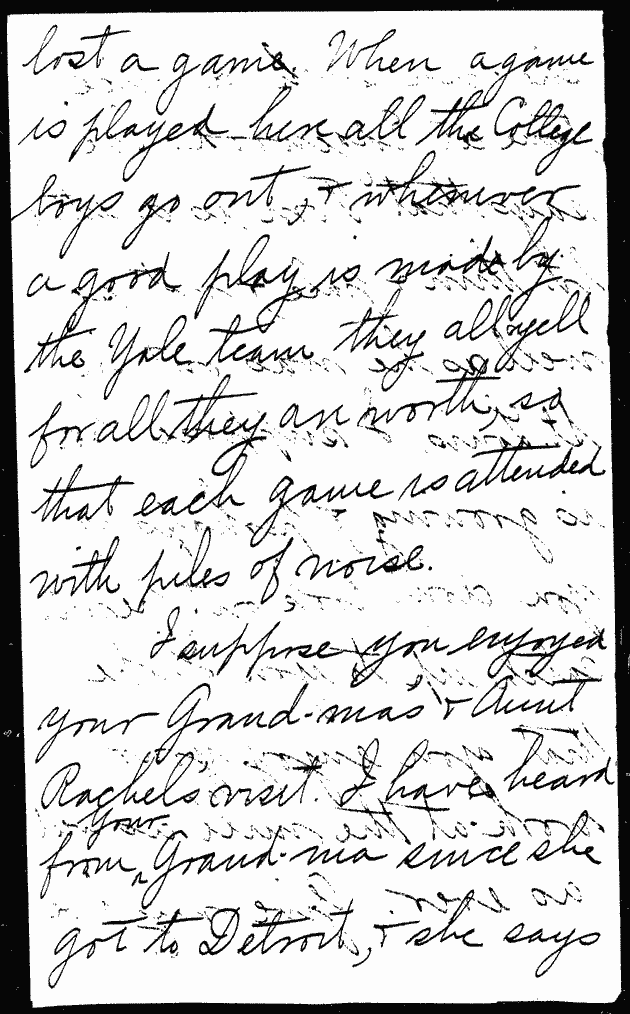 lost a game. When a game
is played here all the College
boys go out, & whenever
a good play is made by
the Yale team they all yell
for all they are worth, so
that each game is attended
with piles of noise.
I suppose you enjoyed
your Grand-ma's & Aunt
Rachels' visit. I have heard
your
from ^ Grand-ma since she
got to Detroit, & she says